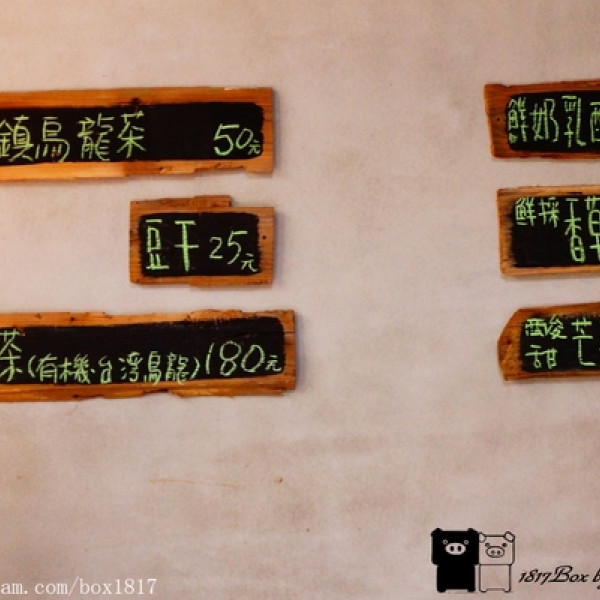 鎮烏龍茶 50元
豆干 25元
茶(有機.台灣烏龍)180元
鮮奶乳酪
鮮採香草
酸甜芒
am.com/box1817
1817Box b